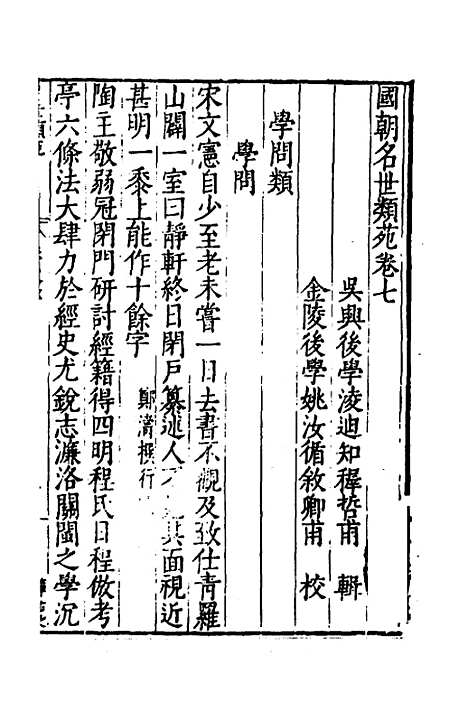 國朝名世類苑卷七
吳興後學凌迪知穉哲甫 輯
金陵後學姚汝循敘卿甫 校
學問類
學問
宋文憲自少至老未嘗一日去書不觀及致仕青羅
山闢一室曰靜軒終日閉戶纂述人不 其面視近
甚明一黍上能作十餘字 鄭濟撰行
陶主敬弱冠閉門研討經籍得四明程氏日程倣考
亭六條法大肆力於經史尤銳志濂洛關閩之學沉